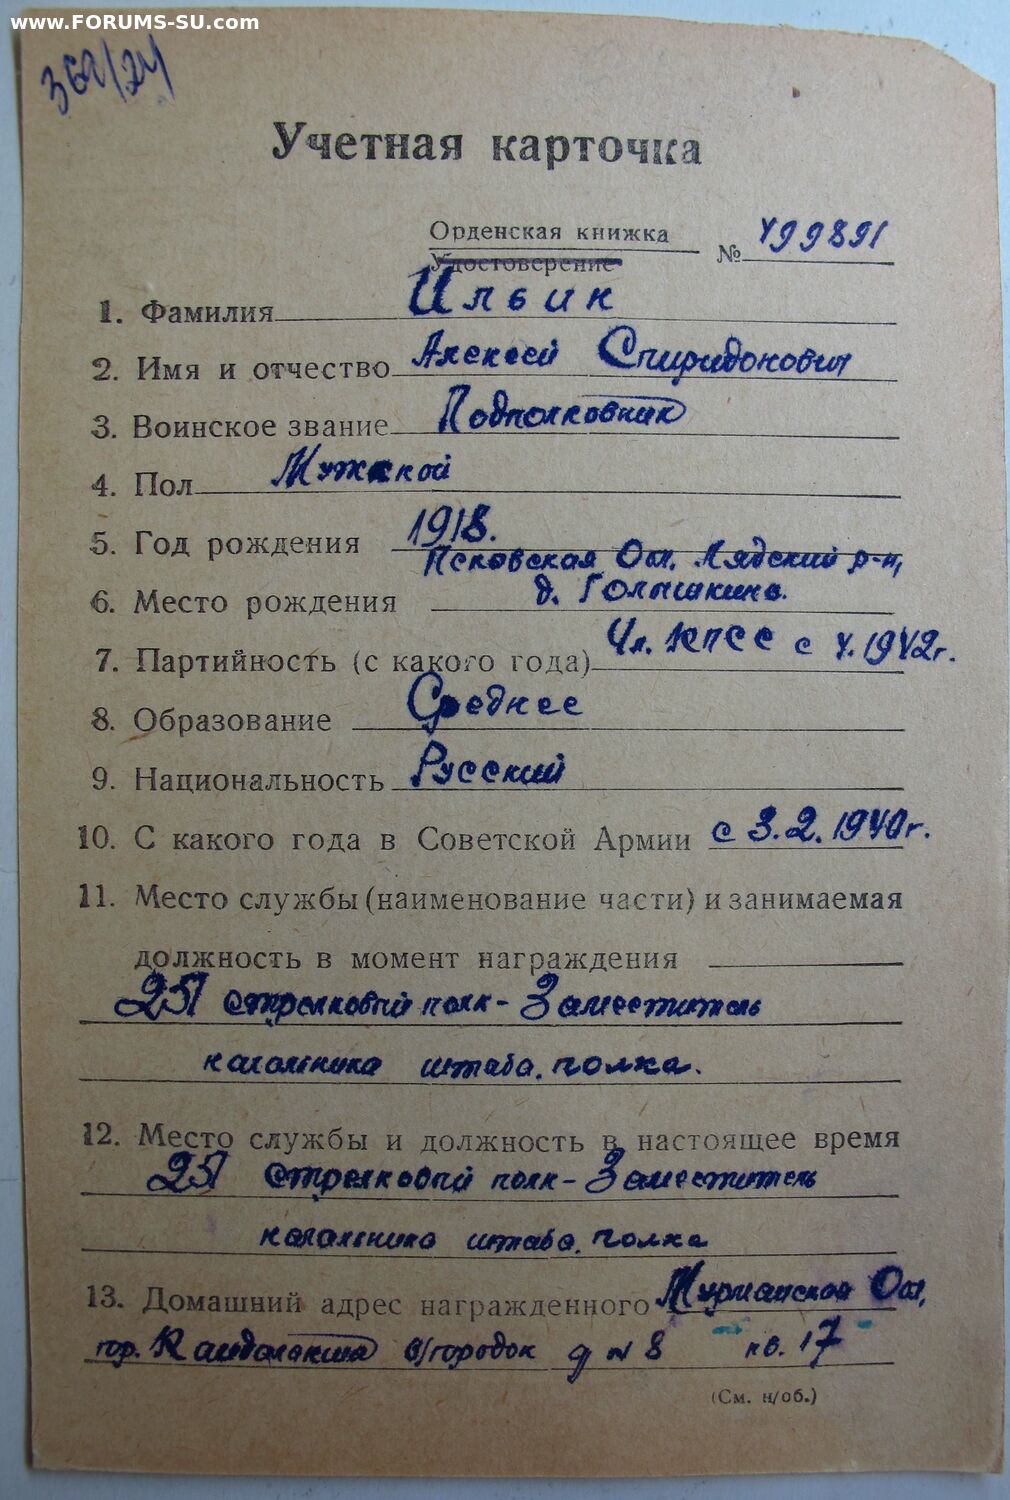 www.FORUMS-SU.com
Учетная карточка
Орденская книжка
Удостоверение № 499891
1. Фамилия Ильин
2. Имя и отчество Алексей Спиридонович
3. Воинское звание Подполковник
4. Пол Мужской
5. Год рождения 1918.
Псковская Обл. Лядский р-н,
6. Место рождения д. Голышкино.
7. Партийность (с какого года) Чл. КПСС с 4.1942г.
8. Образование Среднее
9. Национальность Русский
10. С какого года в Советской Армии с 3.2.1940г.
11. Место службы (наименование части) и занимаемая
должность в момент награждения
251 стрелковый полк - Заместитель
начальника штаба. полка.
12. Место службы и должность в настоящее время
251 стрелковый полк - Заместитель
начальника штаба. полка
13. Домашний адрес награжденного Мурманской Обл,
гор. Кандалакша в/городок д № 8 кв. 17
(См. н/об.)